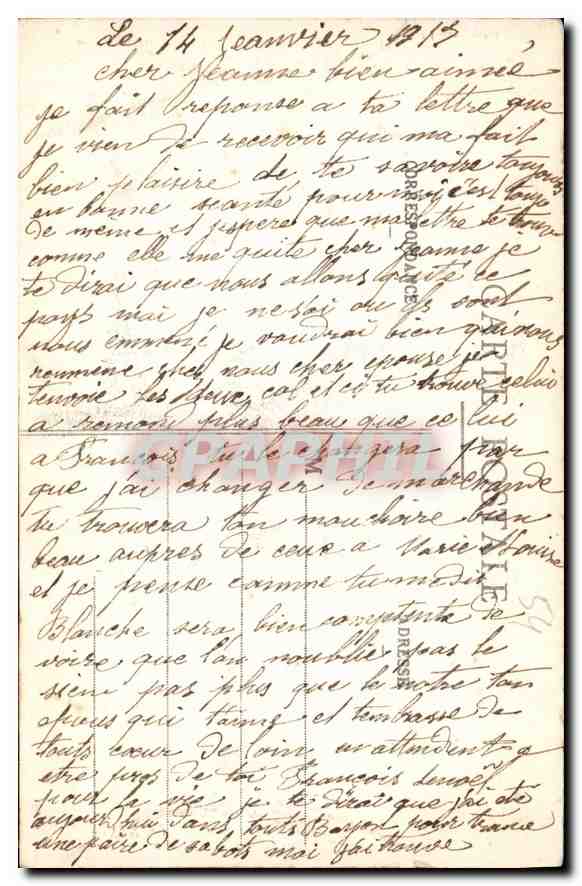 Le 14 Jeanvier 1915
cher Jeanne bien aimée
je fait reponse a ta lettre que
je vien de recevoir qui ma fait
bien plaisire de te savoire toujours
en bonne scanté pour moi c'est
de meme et j'espere que ma lettre te
comme elle me quite cher Jeanne je
te dirai que nous allons quité ce
pays mai je ne sai ou ils vont
nous emmené je voudrai bien qu'i nous
remmene chez nous cher epouse je
t'envoie les deux col et ci tu trouve celui
a remond plus beau que ce lui
a François tu le changera par
que j'ai changer de marchande
tu trouvera ton mouchoire bien
beau aupres de ceux a Marie Louise
et je pense comme tu me dis
Blanche sera bien contente de
voire que l'on noublie pas le
sien pas plus que le notre ton
epous qui t'aime et t'embrasse de
touts cœur de loin en attendent
etre pres de toi François Lenoël
pour la vie je te dirai que j'ai été
aujour hui dans touts Bayon pour trouve
une paire de sabots moi j'ai trouve
CARTE POSTALE
CORRESPONDANCE
ADRESSE
M
54
CPAPHIL